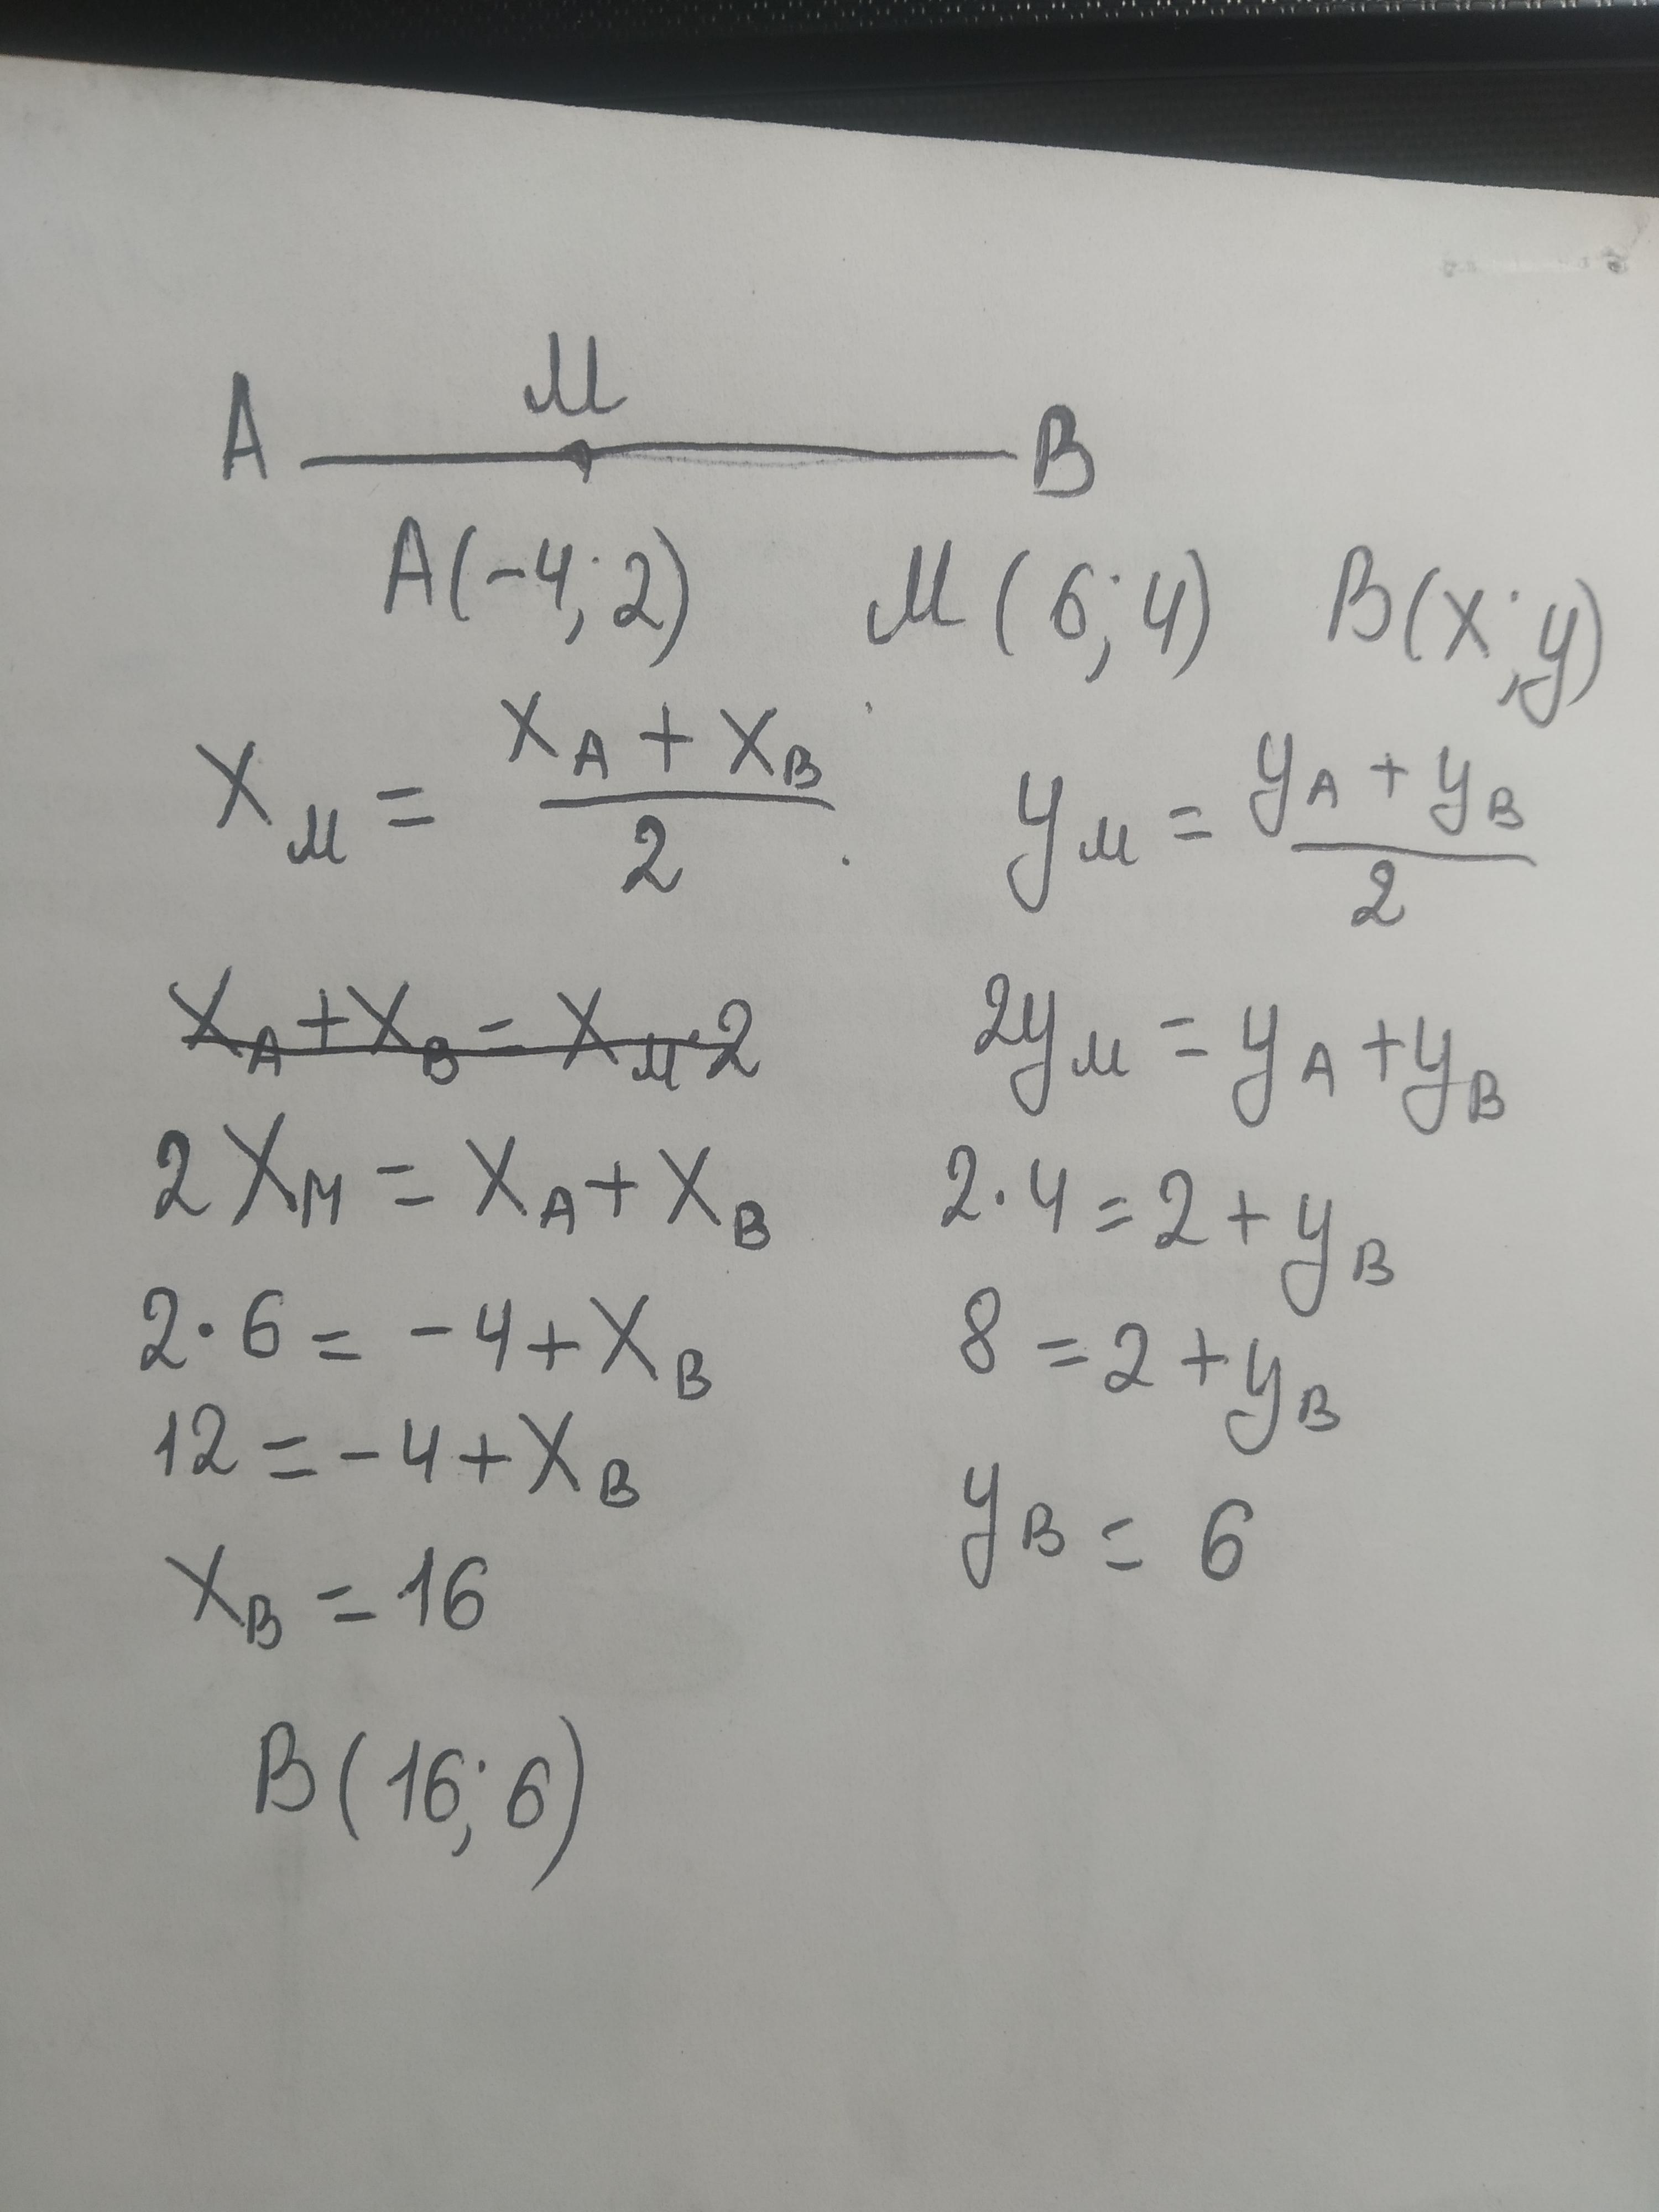 M
A B
A(-4; 2) M(6; 4) B(x; y)
x_M = (x_A + x_B)/2 y_M = (y_A + y_B)/2
x_A + x_B = x_M · 2 2y_M = y_A + y_B
2x_M = x_A + x_B 2·4 = 2 + y_B
2·6 = -4 + x_B 8 = 2 + y_B
12 = -4 + x_B y_B = 6
x_B = 16
B(16; 6)